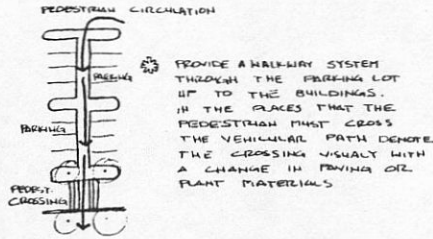 PEDESTRIAN CIRCULATION
PARKING
PARKING
PEDEST.
CROSSING
PROVIDE A WALKWAY SYSTEM
THROUGH THE PARKING LOT
UP TO THE BUILDINGS.
IN THE PLACES THAT THE
PEDESTRIAN MUST CROSS
THE VEHICULAR PATH DENOTE
THE CROSSING VISUALY WITH
A CHANGE IN PAVING OR
PLANT MATERIALS